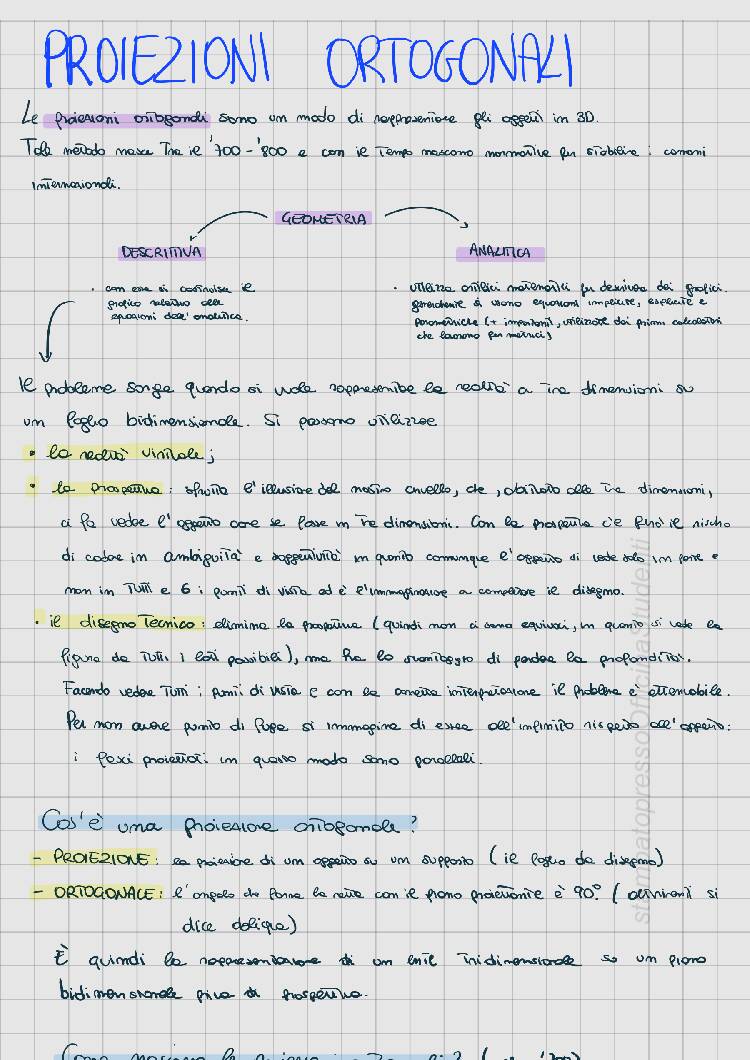 PROIEZIONI ORTOGONALI
Le proiezioni ortogonali sono un modo di rappresentare gli oggetti in 3D.
Tale metodo nasce tra il '700 - '800 e con il tempo nascono normative per stabilire i canoni
internazionali.
GEOMETRIA
DESCRITTIVA
ANALITICA
• con essa si costruisce il
grafico relativo alle
equazioni dell'analitica.
• utilizza artifici matematici per descrivere dei grafici.
generalmente si usano equazioni implicite, esplicite e
parametriche (+ importanti, utilizzate dai primi calcolatori
che lavorano per matrici)
Il problema sorge quando si vuole rappresentare la realtà a tre dimensioni su
un foglio bidimensionale. Si possono utilizzare
• la realtà virtuale;
• la prospettiva: sfrutta l'illusione del nostro cervello, che, abituato alle tre dimensioni,
ci fa vedere l'oggetto come se fosse in tre dimensioni. Con la prospettiva c'è però il rischio
di cadere in ambiguità e soggettività in quanto comunque l'oggetto si vede solo in parte e
non in tutti e 6 i punti di vista ed è l'immaginazione a completare il disegno.
• il disegno tecnico: elimina la prospettiva (quindi non ci sono equivoci, in quanto si vede la
figura da tutti i lati possibili), ma ha lo svantaggio di perdere la profondità.
Facendo vedere tutti i punti di vista e con la corretta interpretazione il problema è
Per non avere punto di fuga si immagina di essere all'infinito rispetto all'oggetto:
i fasci proiettati in questo modo sono paralleli.
Cos'è una proiezione ortogonale?
- PROIEZIONE: la proiezione di un oggetto su un supporto (il foglio da disegno)
- ORTOGONALE: l'angolo che forma la retta con il piano proiettante è 90° (altrimenti si
dice obliqua)
È quindi la rappresentazione di un ente tridimensionale su un piano
bidimensionale priva di prospettiva.
stampatopressoOfficinaStudenti